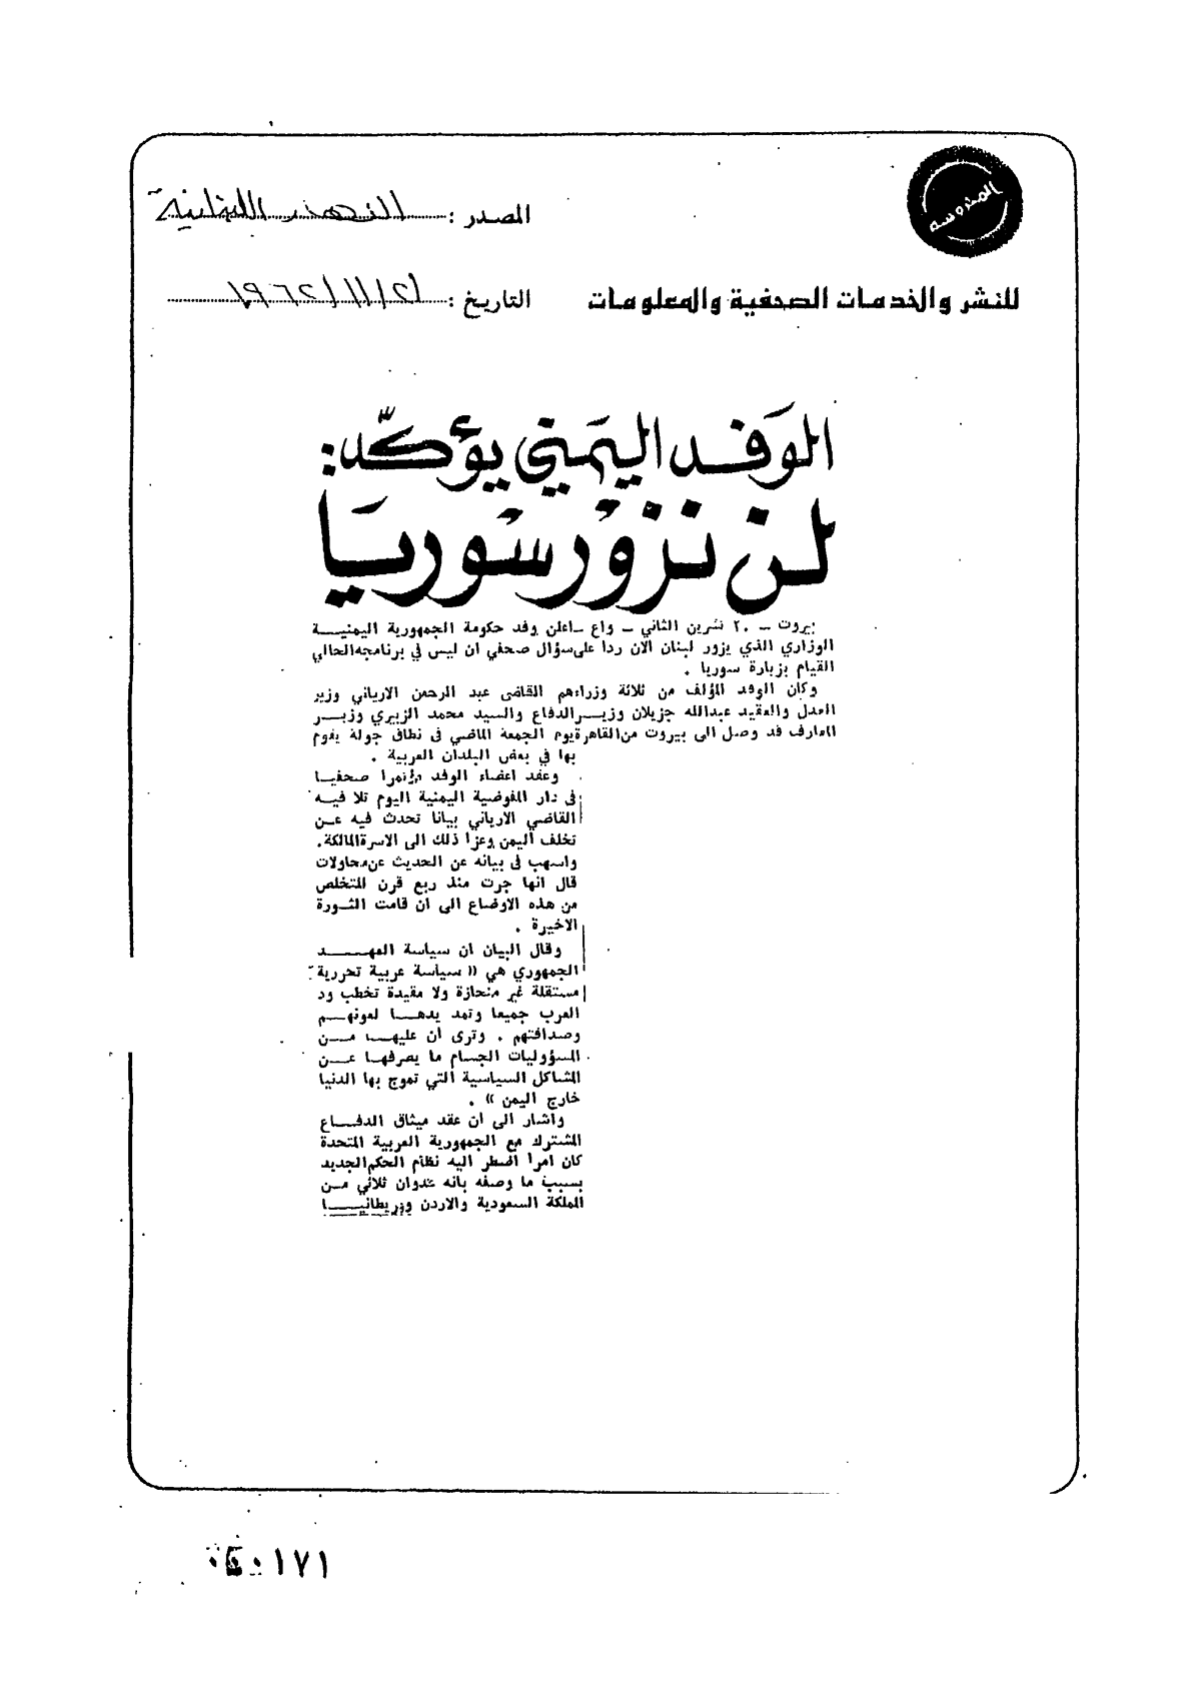 المحروسة
المصدر : النهار اللبنانية
للنشر والخدمات الصحفية والمعلومات
التاريخ : ٢١ / ١١ / ١٩٦٢
الوَفد اليَمَني يؤكّد:
لن نزوْر سوْريَا
بيروت – ٢٠ تشرين الثاني – واع – اعلن وفد حكومة الجمهورية اليمنيـــة
الوزاري الذي يزور لبنان الان ردا على سؤال صحفي ان ليس في برنامجه الحالي
القيام بزيارة سوريا .
وكان الوفد المؤلف من ثلاثة وزراء هم القاضي عبد الرحمن الارياني وزير
العدل والعقيد عبدالله جزيلان وزيـــر الدفاع والسيد محمد الزبيري وزيـــر
المعارف قد وصل الى بيروت من القاهرة يوم الجمعة الماضي في نطاق جولة يقوم
بها في بعض البلدان العربية .
وعقد اعضاء الوفد مؤتمرا صحفيــا
في دار المفوضية اليمنية اليوم تلا فيــه
القاضي الارياني بيانا تحدث فيه عــن
تخلف اليمن وعزا ذلك الى الاسرة المالكة.
واسهب في بيانه عن الحديث عن محاولات
قال انها جرت منذ ربع قرن للتخلص
من هذه الاوضاع الى ان قامت الثــورة
الاخيرة .
وقال البيان ان سياسة العهـــــد
الجمهوري هي « سياسة عربية تحررية
مستقلة غير منحازة ولا مقيدة تخطب ود
العرب جميعا وتمد يدهـــا لعونهـــم
وصداقتهم . وترى ان عليهـــا مـــن
المسؤوليات الجسام ما يصرفهـا عـــن
المشاكل السياسية التي تموج بها الدنيا
خارج اليمن » .
واشار الى ان عقد ميثاق الدفـــاع
المشترك مع الجمهورية العربية المتحدة
كان امرا اضطر اليه نظام الحكم الجديد
بسبب ما وصفه بانه عدوان ثلاثي مـــن
المملكة السعودية والاردن وبريطانيـــا